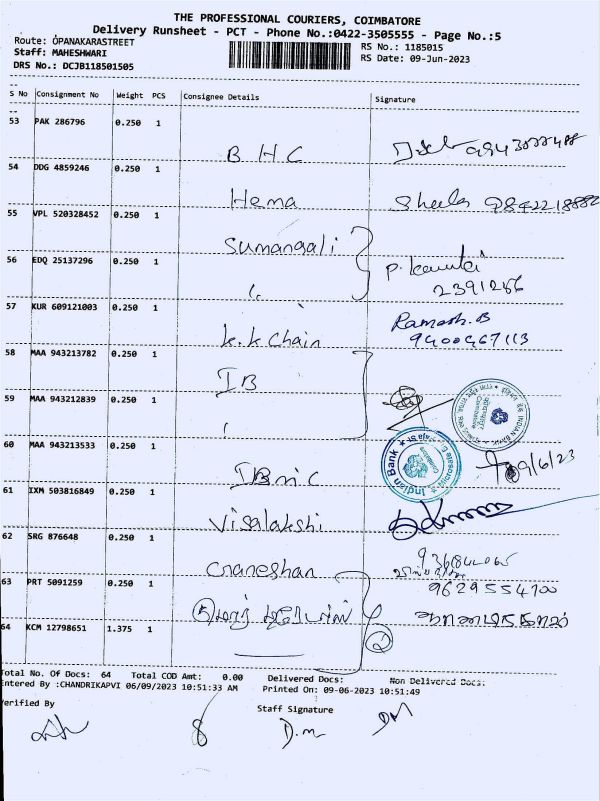 THE PROFESSIONAL COURIERS, COIMBATORE
Delivery Runsheet - PCT - Phone No.:0422-3505555 - Page No.:5
Route: OPANAKARASTREET
RS No.: 1185015
Staff: MAHESHWARI
RS Date: 09-Jun-2023
DRS No.: DCJB118501505
S No Consignment No Weight PCS Consignee Details Signature
53 PAK 286796 0.250 1
B H C
54 DDG 4859246 0.250 1
Hema Sheela 9842218882
55 VPL 520328452 0.250 1
Sumangali
56 EDQ 25137296 0.250 1
" 2391286
57 KUR 609121003 0.250 1 Ramesh.B
K.K Chain 9400467113
58 MAA 943213782 0.250 1
IB
59 MAA 943212839 0.250 1
"
60 MAA 943213533 0.250 1
Indian Bank
IB 9/6/23
61 IXM 503816849 0.250 1
Visalakshi
62 SRG 876648 0.250 1
Ganeshan
63 PRT 5091259 0.250 1 9629554700
64 KCM 12798651 1.375 1
2
Total No. Of Docs: 64 Total COD Amt: 0.00 Delivered Docs: Non Delivered Docs:
Entered By :CHANDRIKAPVI 06/09/2023 10:51:33 AM Printed On: 09-06-2023 10:51:49
Verified By Staff Signature
8 D.m